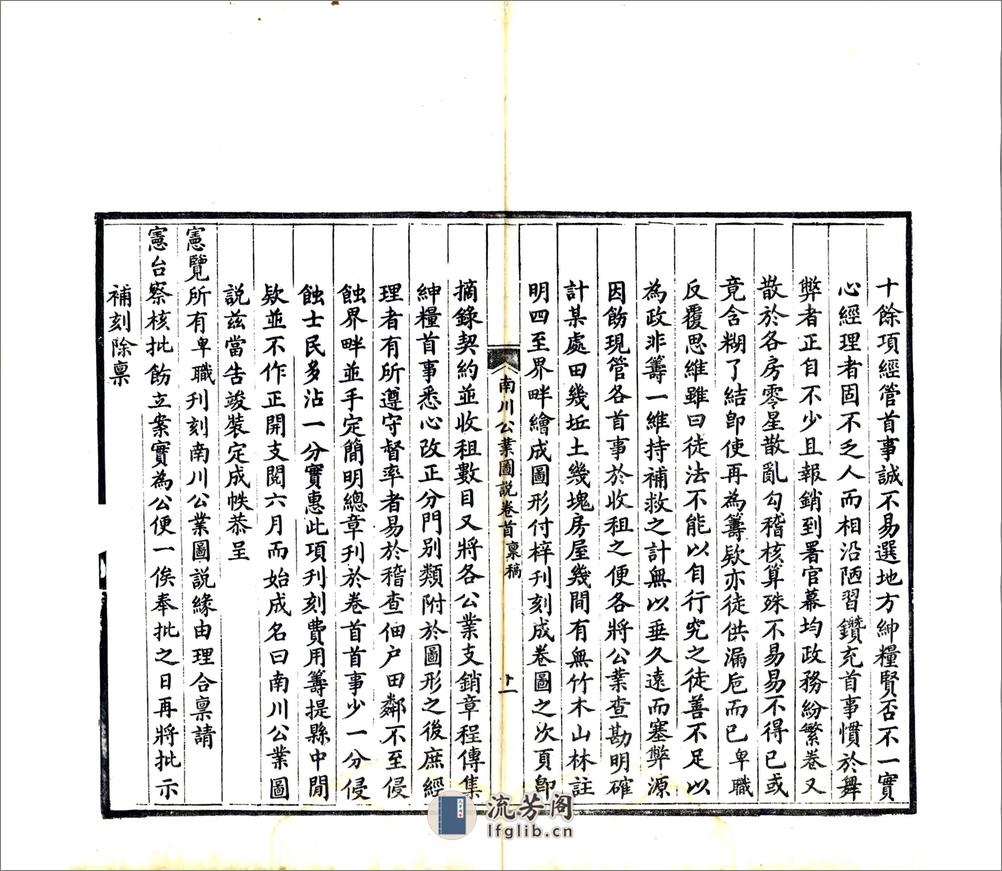 十餘項經管首事誠不易選地方紳糧賢否不一實
心經理者固不乏人而相沿陋習鑽充首事慣於舞
弊者正自不少且報銷到署官幕均政務紛繁卷又
散於各房零星散亂勾稽核算殊不易易不得已或
竟含糊了結卽使再為籌欵亦徒供漏卮而已卑職
反覆思維雖曰徒法不能以自行究之徒善不足以
為政非籌一維持補救之計無以垂久遠而塞弊源
因飭現管各首事於收租之便各將公業查勘明確
計某處田幾坵土幾塊房屋幾間有無竹木山林註
明四至界畔繪成圖形付梓刊刻成卷圖之次頁卽
南川公業圖說卷首 稟稿 十一
摘錄契約並收租數目又將各公業支銷章程傳集
紳糧首事悉心改正分門別類附於圖形之後庶經
理者有所遵守督率者易於稽查佃户田鄰不至侵
蝕界畔並手定簡明總章刊於卷首首事少一分侵
蝕士民多沾一分實惠此項刊刻費用籌提縣中閒
欵並不作正開支閱六月而始成名曰南川公業圖
說兹當告竣裝定成帙恭呈
憲覽所有卑職刊刻南川公業圖說緣由理合稟請
憲台察核批飭立案實為公便一俟奉批之日再將批示
補刻除稟
流芳阁
lfglib.cn